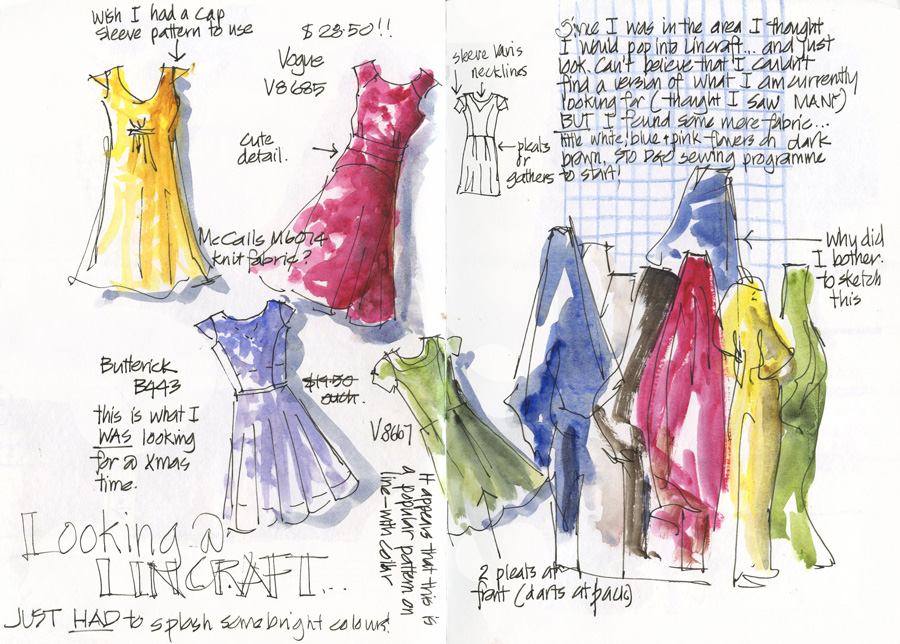 Wish I had a cap
sleeve pattern to use
$28.50!!
Vogue
V8685
cute
detail.
McCalls M6074
knit fabric?
Butterick
B5443
this is what I
WAS looking
for @ Xmas
time.
$19.50
ouch.
V8667
It appears that this is
a popular pattern on
line-with collar
Looking @
LINCRAFT...
JUST HAD to splash some bright colours!
sleeve varis
necklines
pleats
or
gathers
Since I was in the area I thought
I would pop into Lincraft... and just
look. Can't believe that I couldn't
find a version of what I am currently
looking for (thought I saw MANY)
BUT I found some more fabric...
little white, blue + pink flowers on dark
brown. SO D&D sewing programme
to start!
Why did
I bother
to sketch
this
2 pleats at
font (darts at back)